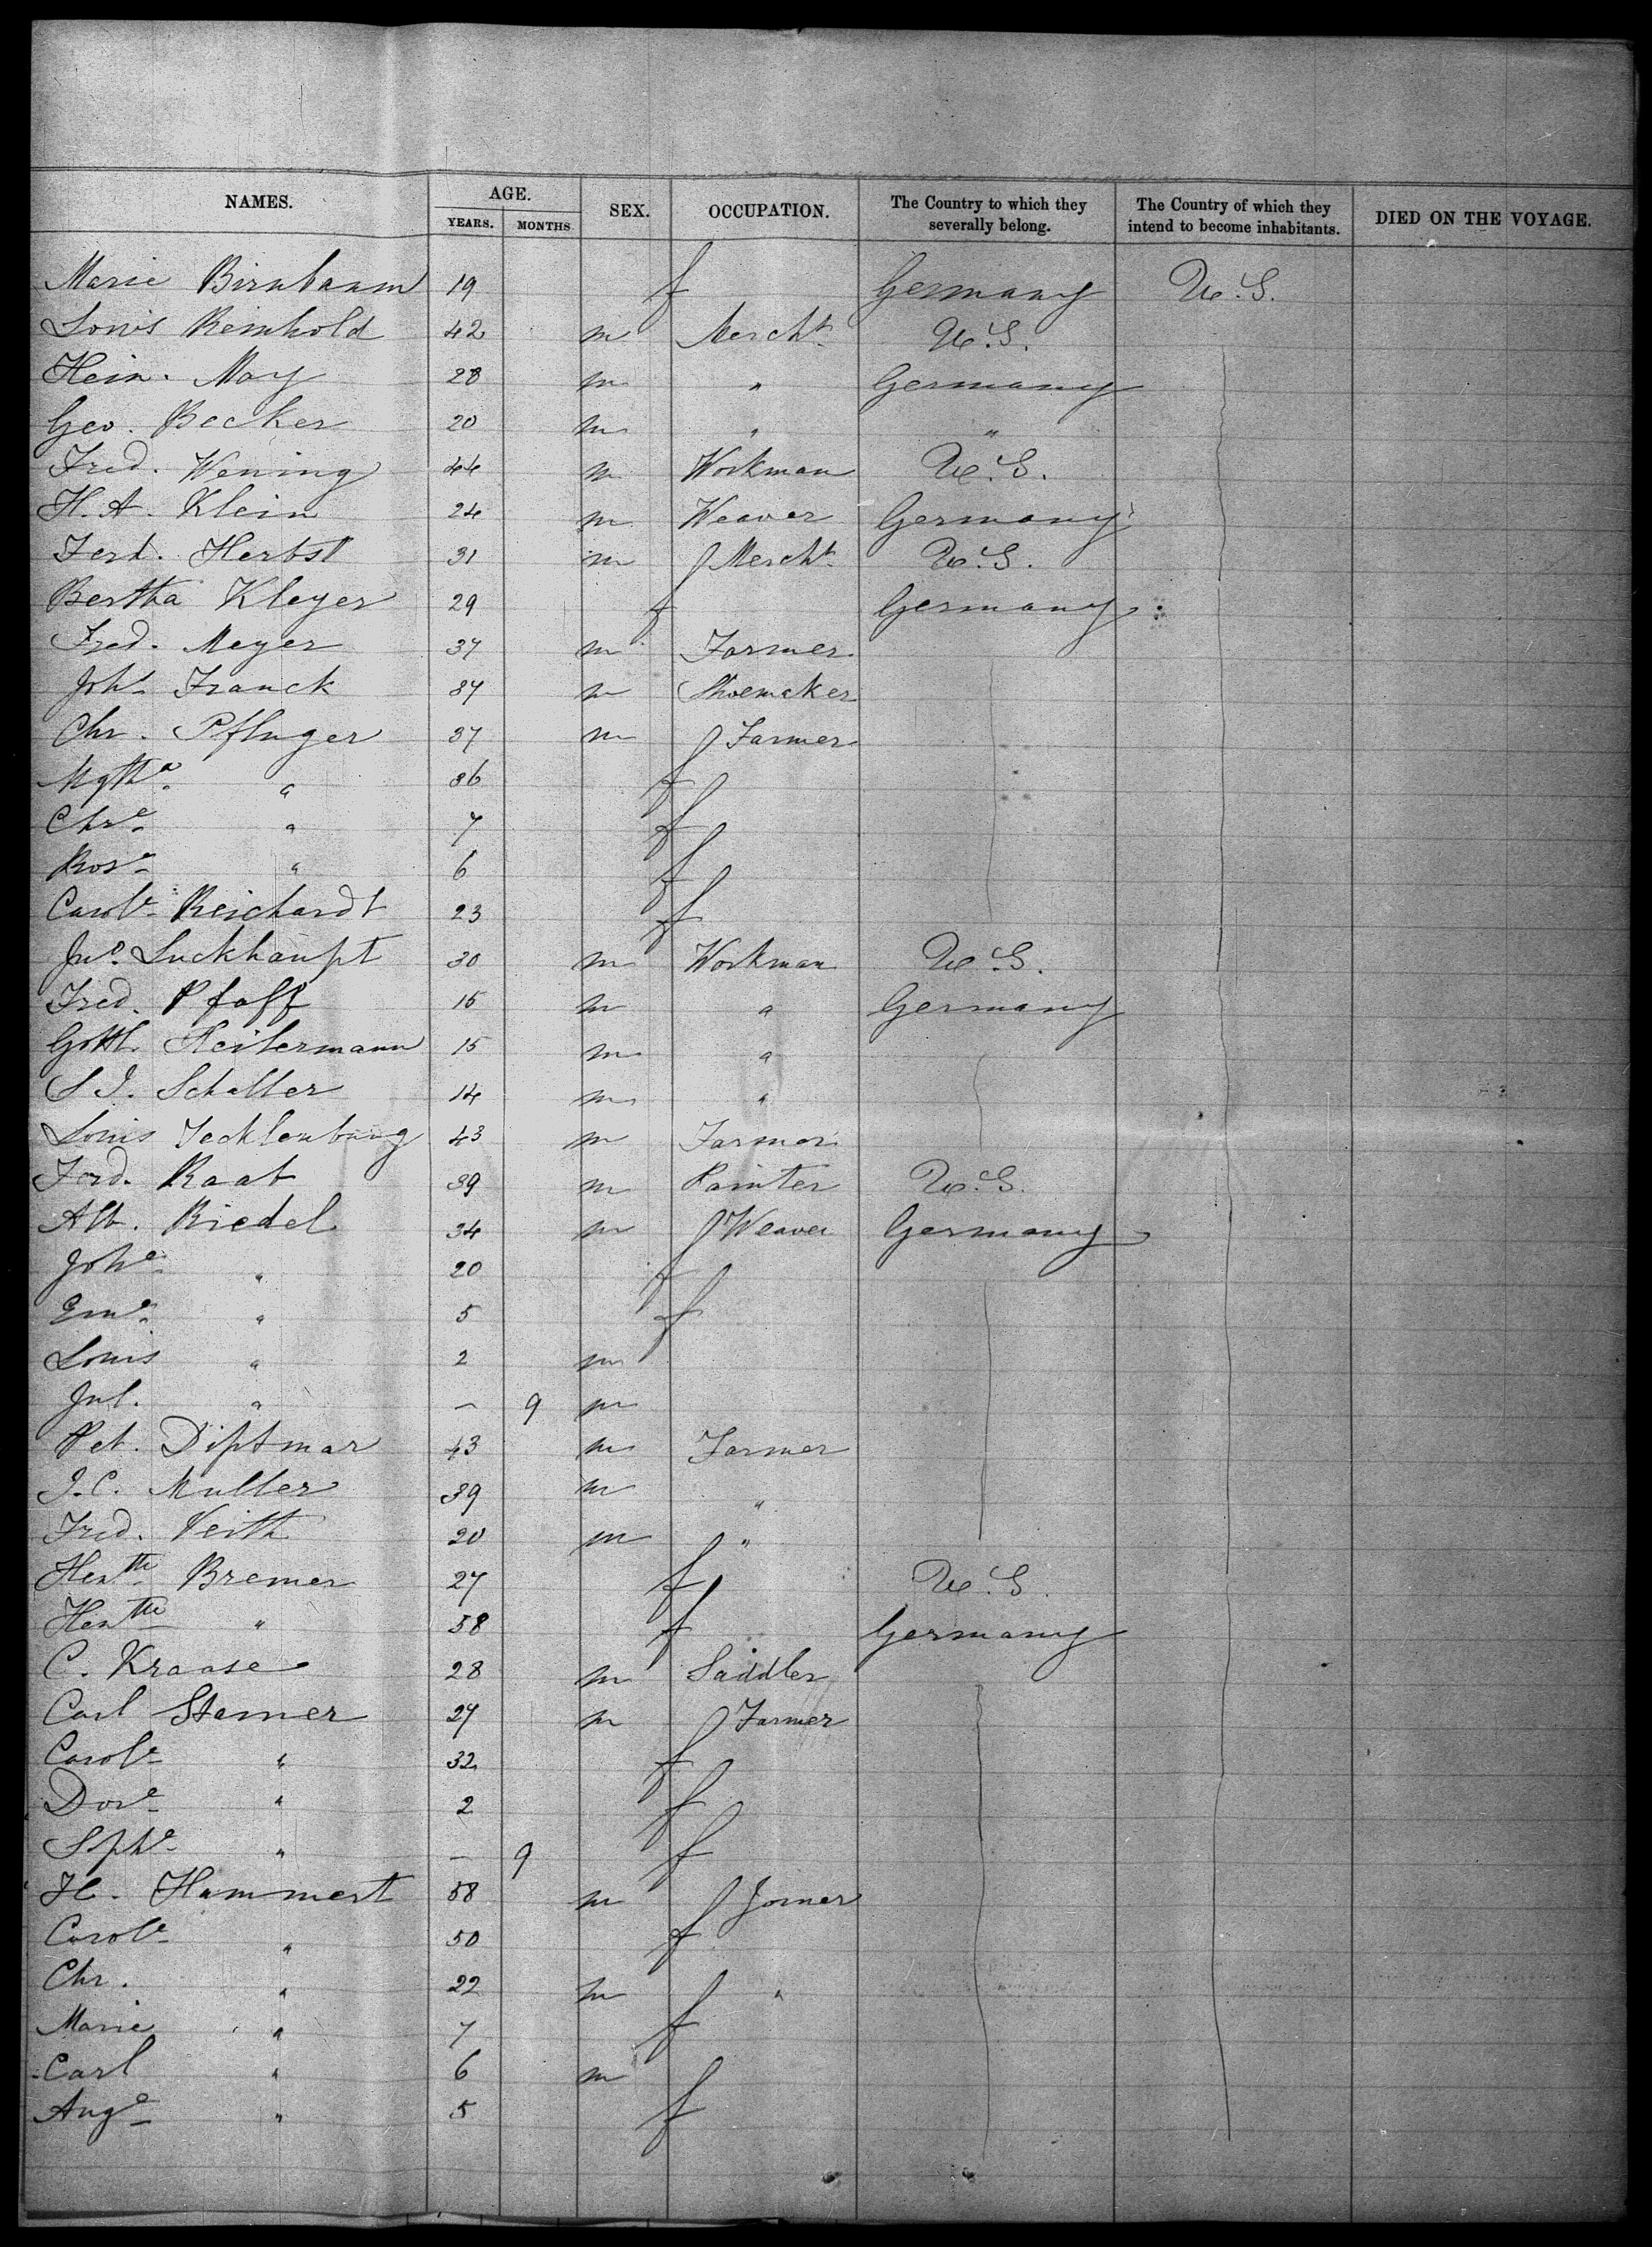 NAMES. AGE. SEX. OCCUPATION. The Country to which they severally belong. The Country of which they intend to become inhabitants. DIED ON THE VOYAGE.
YEARS. MONTHS
Marie Birnbaum 19 f Germany U.S.
Louis Reinhold 42 m Mercht. U.S.
Hein. May 28 m " Germany
Geo. Becker 20 m " "
Fred. Wening 44 m Workman U.S.
H. A. Klein 24 m Weaver Germany
Ferd. Herbst 31 m Mercht. U.S.
Bertha Kleyer 29 f Germany
Fred. Meyer 37 m Farmer
Johs. Franck 37 m Shoemaker
Chr. Pfluger 37 m Farmer
Mgtha. " 36 f
Chre. " 7 f
Rose. " 6 f
Carole. Reichardt 23 f
Jno. Luckhaupt 30 m Workman U.S.
Fred. Pfaff 15 m " Germany
Gottl. Heilermann 15 m "
S. J. Schaller 14 m "
Louis Tecklenburg 43 m Farmer
Ferd. Raab 39 m Painter U.S.
Alb. Riedel 34 m Weaver Germany
Johe. " 20 f
Eme. " 5 f
Louis " 2 m
Jul. " — 9 m
Pet. Diptmar 43 m Farmer
J. C. Muller 39 m "
Fred. Veith 20 m "
Hentte. Bremer 27 f U.S.
Hentte. " 58 f Germany
C. Kraase 28 m Saddler
Carl Stamer 27 m Farmer
Carole. " 32 f
Dore. " 2 f
Sophe. " — 9 f
H. Hammert 58 m Joiner
Carole. " 50 f
Chr. " 22 m "
Marie " 7 f
Carl " 6 m
Auge. " 5 f